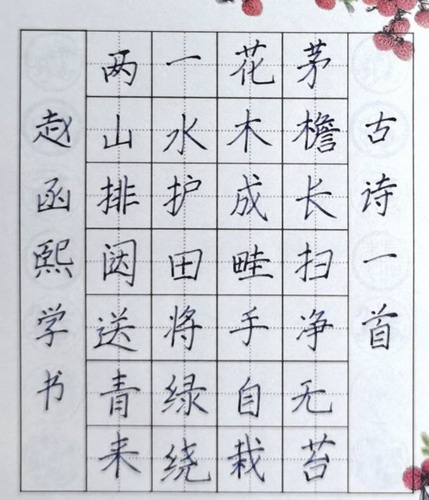 古诗一首
茅檐长扫净无苔
花木成畦手自栽
一水护田将绿绕
两山排闼送青来
赵函熙学书